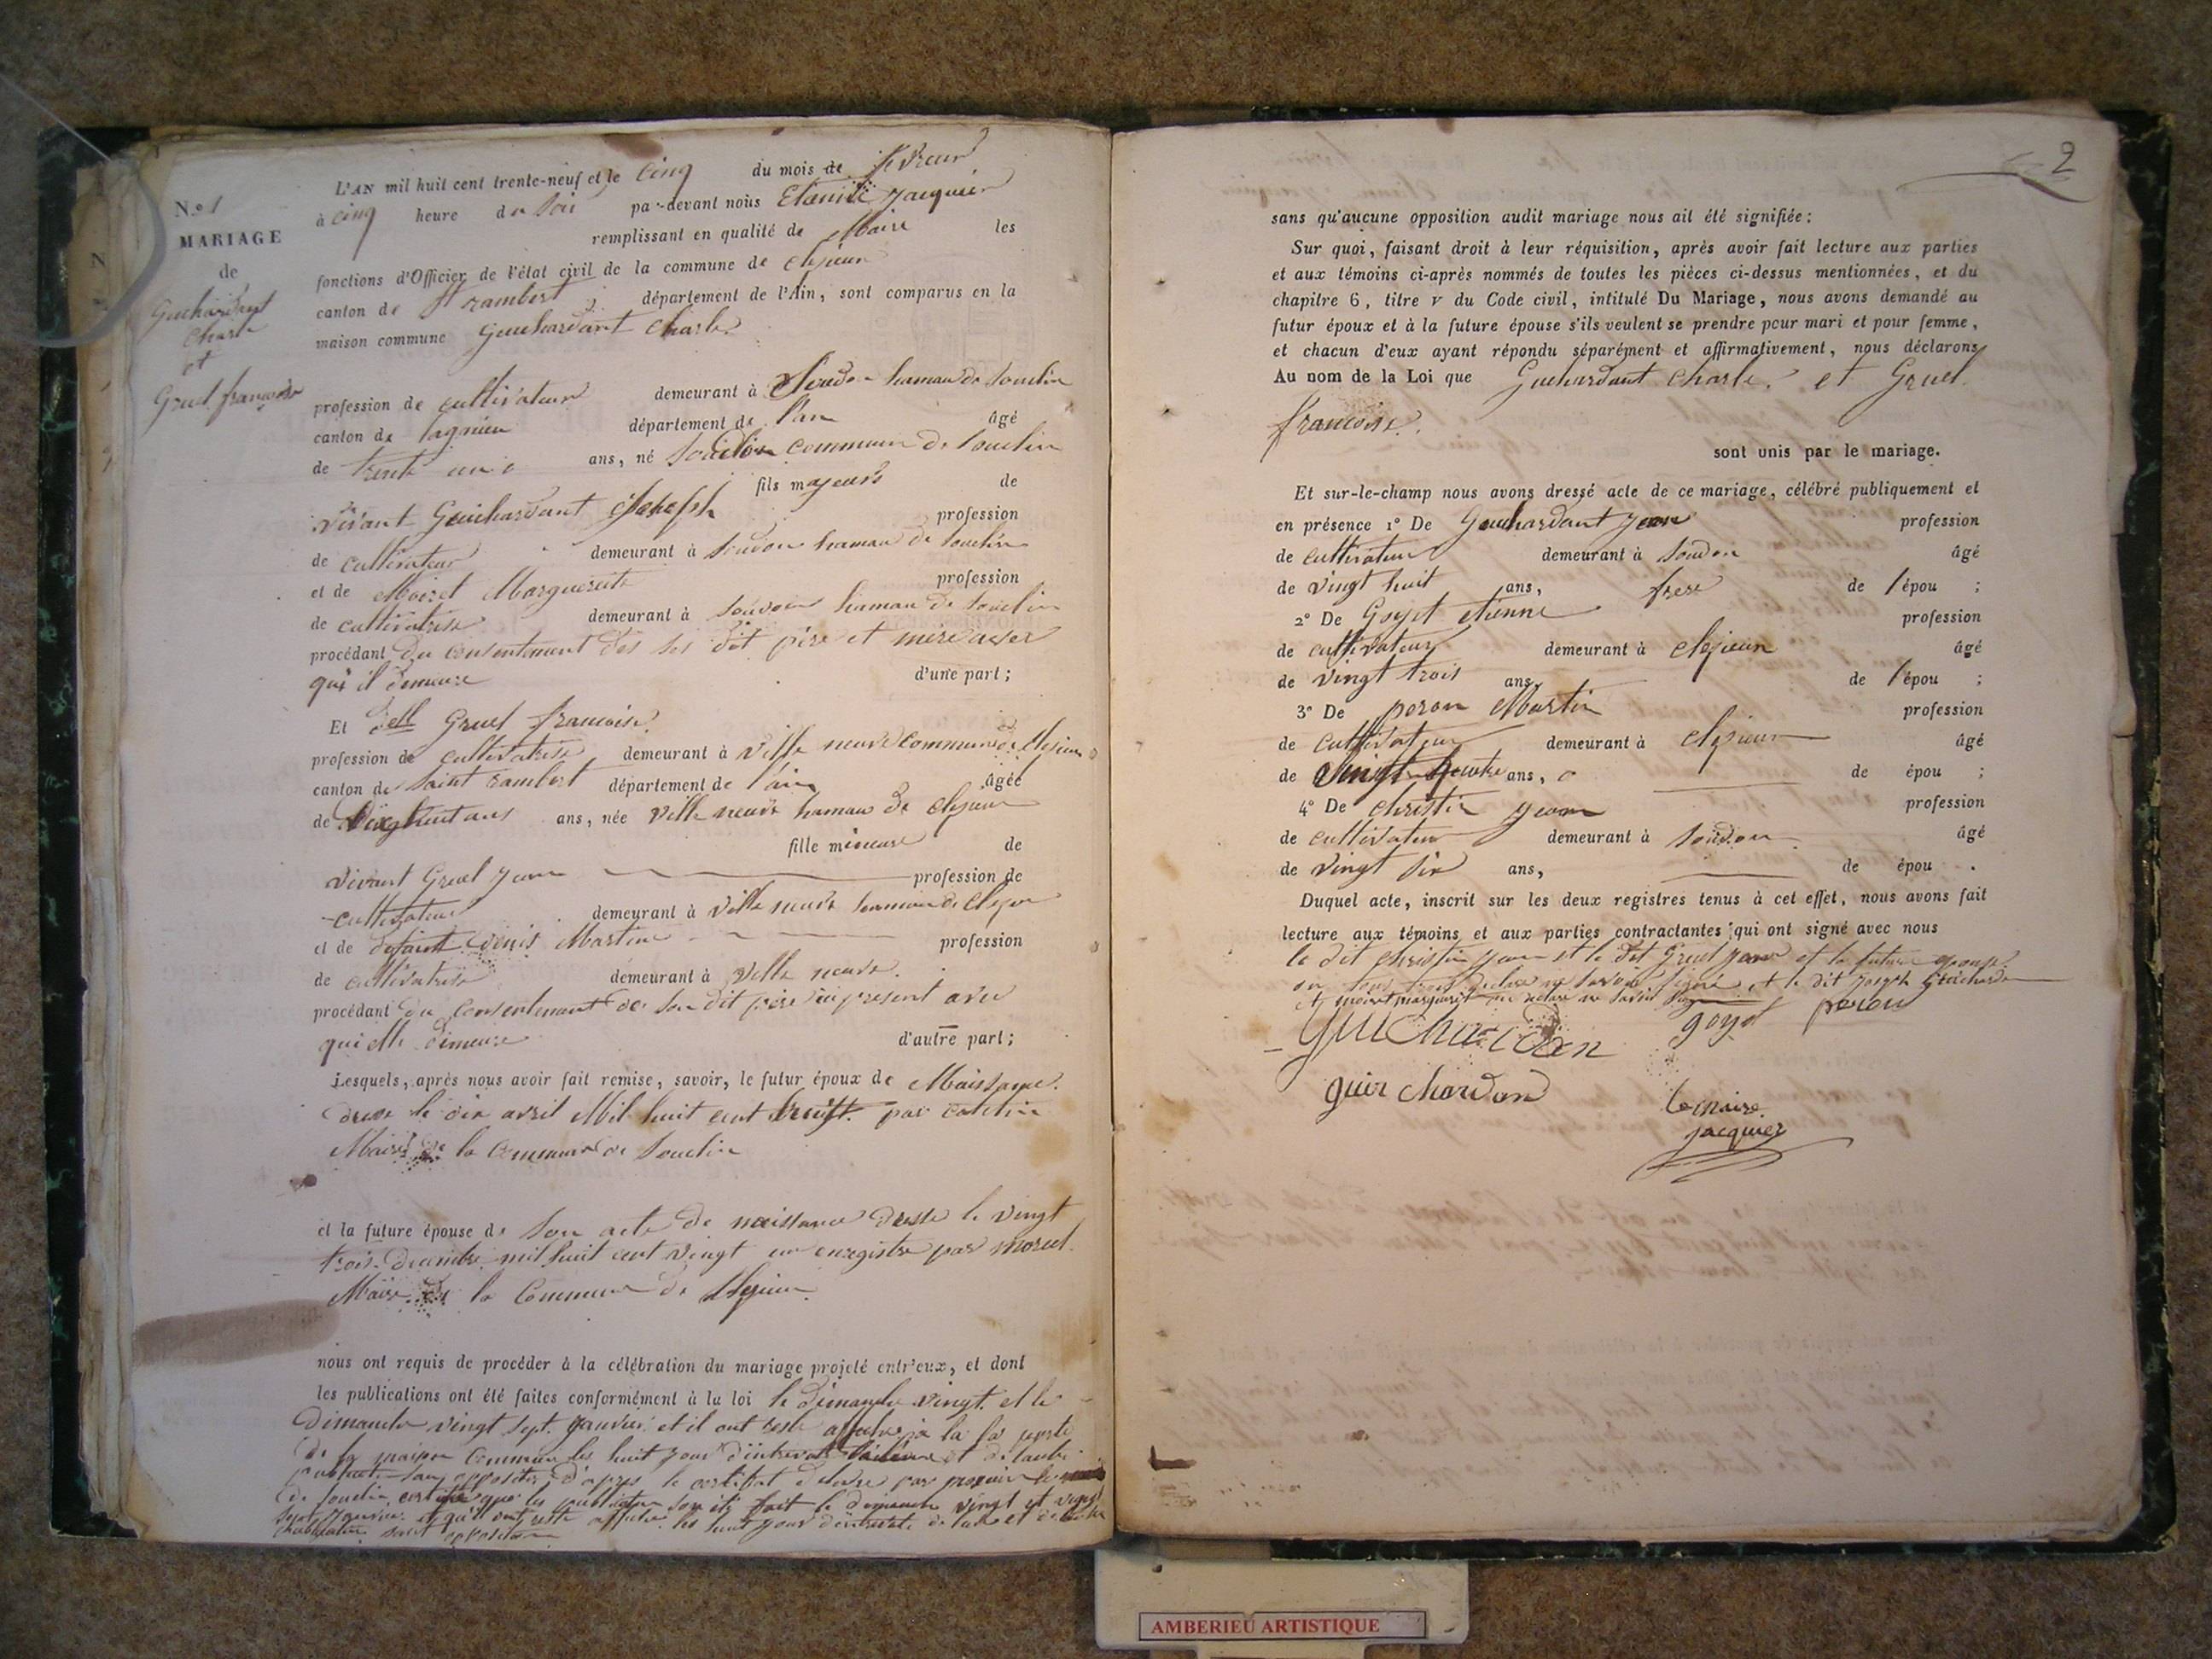 N.o 1
MARIAGE
de
Guichardant
Charle
et
Gruel françoise
L'AN mil huit cent trente-neuf et le cinq du mois de fevrier
à cinq heure du soir par-devant nous Etienne jacquier
remplissant en qualité de Maire les
fonctions d'Officier de l'état civil de la commune de clesieux
canton de St rambert département de l'Ain, sont comparus en la
maison commune Guichardant Charle
profession de cultivateur demeurant à Soudon hamau de Souclin
canton de lagnieu département de l'ain âgé
de trente un ans, né Soudon commune de Souclin
fils majeurs de
vivant Guichardant Joseph profession
de cultivateur demeurant à Soudon hamau de Souclin
et de Moiret Marguerite profession
de cultivatrise demeurant à Soudon hamau de Souclin
procédant du consentement des ses dit père et mère avec
qui il demeure d'une part;
Et delle Gruel francoise
profession de cultivatrise demeurant à Ville neuve commune de Clesieux
canton de Saint rambert département de l'ain âgée
de Dix huit ans ans, née Ville neuve hamau de Clesieux
fille mineure de
vivant Gruel jean profession de
cultivateur demeurant à Ville neuve hamau de Clesieux
et de defaint Denis Martine profession
de cultivatrise demeurant à Ville neuve
procédant du consentement de son dit père ici present avec
qui elle demeure d'autre part;
Lesquels, après nous avoir fait remise, savoir, le futur époux de Naissance
dresse le dix avril Mil huit cent huit par
Maire de la Commune de Souclin
et la future épouse de son acte de naissance dresse le vingt
trois decembre mil huit cent vingt un enregistre par morel
Maire de la Commune de Clesieux
nous ont requis de procéder à la célébration du mariage projeté entr'eux, et dont
les publications ont été faites conformément à la loi le dimanche vingt et le
Dimanche vingt sept janvier et il ont reste affiches à la porte
de la maison Commune les huit jour d'intervale et de l'autre
publication sans opposition d'apres le certificat delivre par le maire
de Souclin certifie que les publication son été fait le dimanche vingt et vingt
sept janvier et qu'il ont reste affiche les huit jour d'intervale de l'une et de l'autre
publication sans opposition
2
sans qu'aucune opposition audit mariage nous ait été signifiée;
Sur quoi, faisant droit à leur réquisition, après avoir fait lecture aux parties
et aux témoins ci-après nommés de toutes les pièces ci-dessus mentionnées, et du
chapitre 6, titre v du Code civil, intitulé Du Mariage, nous avons demandé au
futur époux et à la future épouse s'ils veulent se prendre pour mari et pour femme,
et chacun d'eux ayant répondu séparément et affirmativement, nous déclarons
Au nom de la Loi que Guichardant Charle et Gruel
francoise
sont unis par le mariage.
Et sur-le-champ nous avons dressé acte de ce mariage, célébré publiquement et
en présence 1° De Guichardant jean profession
de cultivateur demeurant à Soudon âgé
de vingt huit ans, frere de l'épou ;
2° De Goyet etienne profession
de cultivateur demeurant à Clesieux âgé
de vingt trois ans, de l'épou ;
3° De peron Martin profession
de cultivateur demeurant à Clesieux âgé
de vingt quatre ans, de épou ;
4° De christin jean profession
de cultivateur demeurant à Soudon âgé
de vingt six ans, de épou .
Duquel acte, inscrit sur les deux registres tenus à cet effet, nous avons fait
lecture aux témoins et aux parties contractantes qui ont signé avec nous
le dit christin jean et le dit Gruel jean et la future epouse
on tous trois declare ne savoir signé et le dit joseph Guichardan
et moiret marguerit on declare ne savoir signé
guichardan goyet peron
guichardon
le maire
jacquier
AMBERIEU ARTISTIQUE